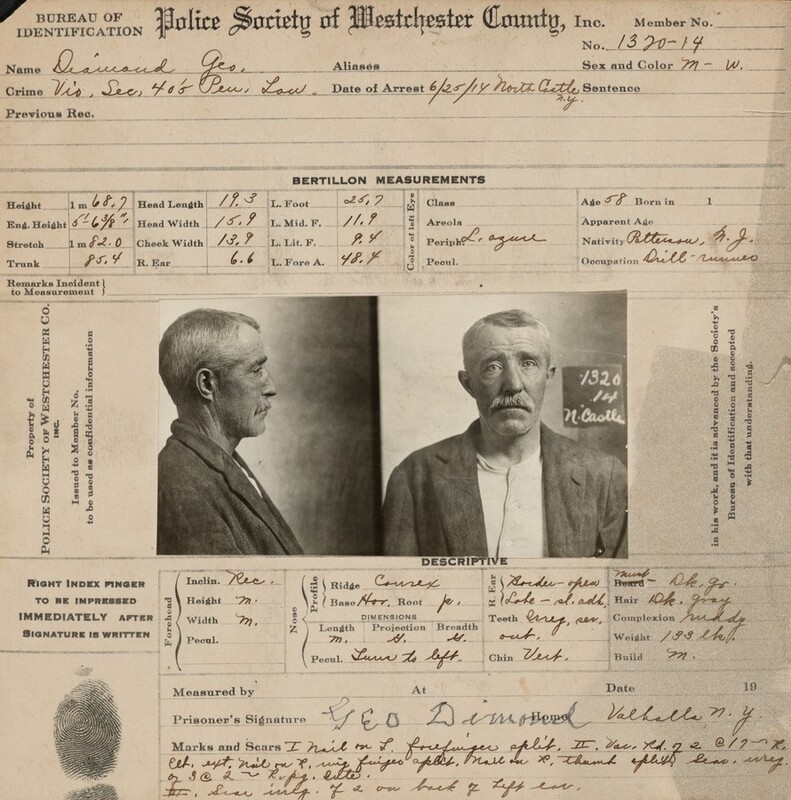 BUREAU OF IDENTIFICATION Police Society of Westchester County, Inc. Member No.
No. 1320-14
Name Diamond Geo. Aliases Sex and Color M - W.
Crime Vio. Sec. 405 Pen. Law. Date of Arrest 6/25/14 North Castle N.Y. Sentence
Previous Rec.
BERTILLON MEASUREMENTS
Height 1 m 68.7 Head Length 19.3 L. Foot 25.7 Color of left Eye Class Age 58 Born in 1
Eng. Height 5'-6 3/8" Head Width 15.9 L. Mid. F. 11.9 Areola Apparent Age
Stretch 1 m 82.0 Cheek Width 13.9 L. Lit. F. 9.4 Periph L. azure Nativity Patterson, N.J.
Trunk 85.4 R. Ear 6.6 L. Fore A. 48.4 Pecul. Occupation Drill-runner
Remarks Incident to Measurement
Property of
POLICE SOCIETY OF WESTCHESTER CO.
INC.
Issued to Member No.
to be used as confidential information
1320
14
N. Castle
in his work, and it is advanced by the Society's
Bureau of Identification and accepted
with that understanding.
DESCRIPTIVE
RIGHT INDEX FINGER
TO BE IMPRESSED
IMMEDIATELY AFTER
SIGNATURE IS WRITTEN
Forehead
Inclin. Rec.
Height M.
Width M.
Pecul.
Nose
Profile
Ridge Convex
Base Hor. Root p.
DIMENSIONS
Length Projection Breadth
m.
Pecul. Turns to left.
R. Ear
Border-open
Lobe-sl. adh.
Teeth Irreg, sev. out.
Chin Vert.
Must Beard Dk. gr.
Hair Dk. gray
Complexion ruddy
Weight 133 lb.
Build M.
Measured by At Date 19
Prisoner's Signature GEO Dimond Home Valhalla N.Y.
Marks and Scars I Nail on L. forefinger split. II. Vac. Rd. of 2 @ 17 R.
Elb. ext. Nail on R. mid finger split. Nail on R. thumb split. Scar irreg.
of 3 @ 2
III. Scar irreg. of 2 on back of left ear.